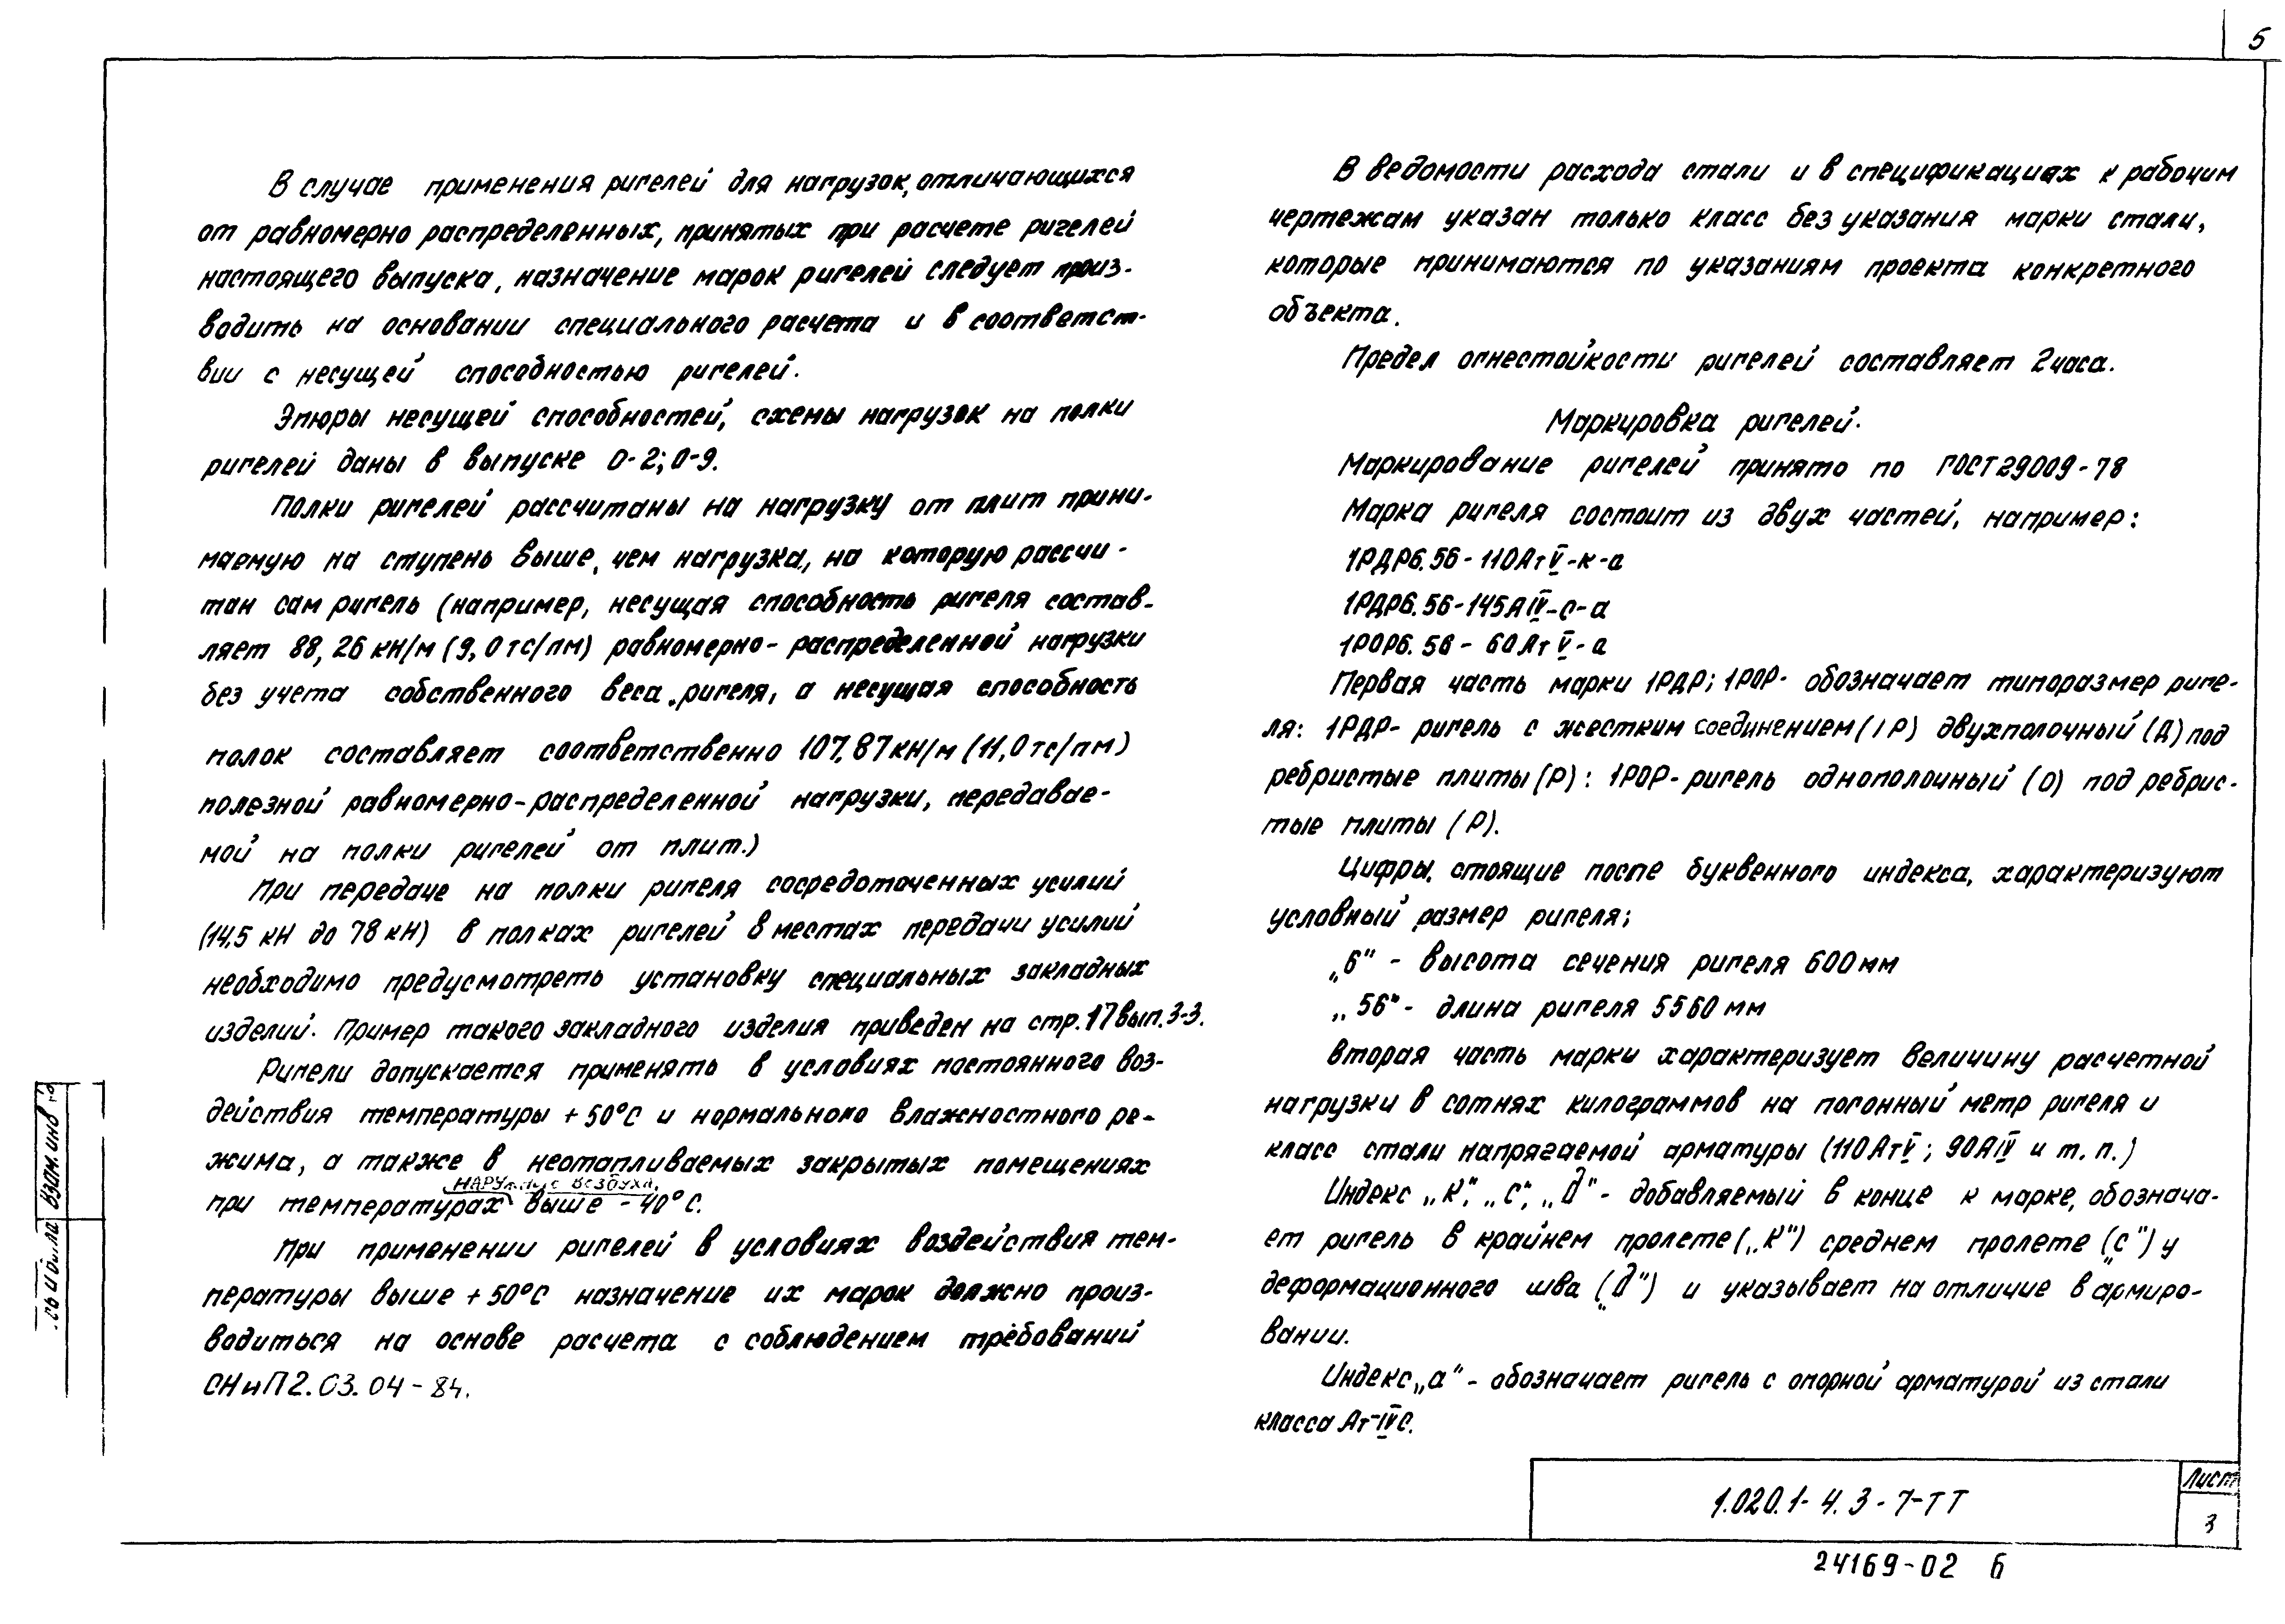 5
В случае применения ригелей для нагрузок, отличающихся
от равномерно распределенных, принятых при расчете ригелей
настоящего выпуска, назначение марок ригелей следует произ-
водить на основании специального расчета и в соответст-
вии с несущей способностью ригелей.
Эпюры несущей способностей, схемы нагрузок на полки
ригелей даны в выпуске 0-2; 0-9.
Полки ригелей рассчитаны на нагрузку от плит прини-
маемую на ступень выше, чем нагрузка, на которую рассчи-
тан сам ригель (например, несущая способность ригеля состав-
ляет 88,26 кН/м (9,0 тс/пм) равномерно-распределенной нагрузки
без учета собственного веса ригеля, а несущая способность
полок составляет соответственно 107,87 кН/м (11,0 тс/пм)
полезной равномерно-распределенной нагрузки, передавае-
мой на полки ригелей от плит.)
При передаче на полки ригеля сосредоточенных усилий
(14,5 кН до 78 кН) в полках ригелей в местах передачи усилий
необходимо предусмотреть установку специальных закладных
изделий. Пример такого закладного изделия приведен на стр. 17 вып. 3-3.
Ригели допускается применять в условиях постоянного воз-
действия температуры +50°С и нормального влажностного ре-
жима, а также в неотапливаемых закрытых помещениях
наружного воздуха,
при температурах выше -40°С.
При применении ригелей в условиях воздействия тем-
пературы выше +50°С назначение их марок должно произ-
водиться на основе расчета с соблюдением требований
СНиП 2.03.04-84.
В ведомости расхода стали и в спецификациях к рабочим
чертежам указан только класс без указания марки стали,
которые принимаются по указаниям проекта конкретного
объекта.
Предел огнестойкости ригелей составляет 2 часа.
Маркировка ригелей.
Маркирование ригелей принято по ГОСТ 29009-78
Марка ригеля состоит из двух частей, например:
1РДР6.56-110АтV-к-а
1РДР6.56-145АIV-с-а
1РОР6.56-60АтV-а
Первая часть марки 1РДР; 1РОР- обозначает типоразмер риге-
ля: 1РДР- ригель с жестким соединением (1Р) двухполочный (Д) под
ребристые плиты (Р): 1РОР-ригель однополочный (О) под ребрис-
тые плиты (Р).
Цифры, стоящие после буквенного индекса, характеризуют
условный размер ригеля;
„6" - высота сечения ригеля 600 мм
„56"- длина ригеля 5560 мм
Вторая часть марки характеризует величину расчетной
нагрузки в сотнях килограммов на погонный метр ригеля и
класс стали напрягаемой арматуры (110АтV; 90АIV и т. п.)
Индекс „К", „С", „д"- добавляемый в конце к марке, обознача-
ет ригель в крайнем пролете („К") среднем пролете („С") у
деформационного шва („д") и указывает на отличие в армиро-
вании.
Индекс „а"- обозначает ригель с опорной арматурой из стали
класса Ат-IVС.
1.020.1-4.3-7-ТТ
Лист
3
24169-02 6
Взам. инв